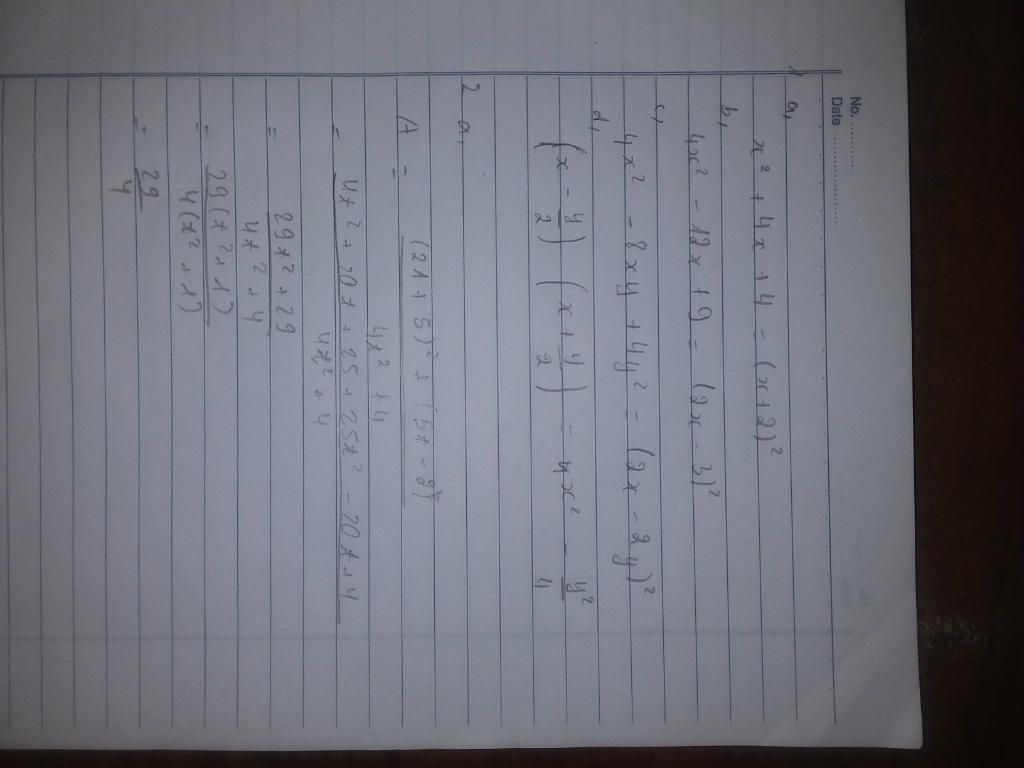 No. ............
Date ......................
1
a, x² + 4x + 4 = (x+2)²
b, 4x² - 12x + 9 = (2x - 3)²
c, 4x² - 8xy + 4y² = (2x - 2y)²
d, (x - y/2) (x + y/2) = 4x² - y²/4
2 a,
A = ((21 + 5)² + (5x - 2)²)/(4x² + 4)
= (4x² + 20x + 25 + 25x² - 20x + 4)/(4x² + 4)
= (29x² + 29)/(4x² + 4)
= (29(x² + 1))/(4(x² + 1))
= 29/4